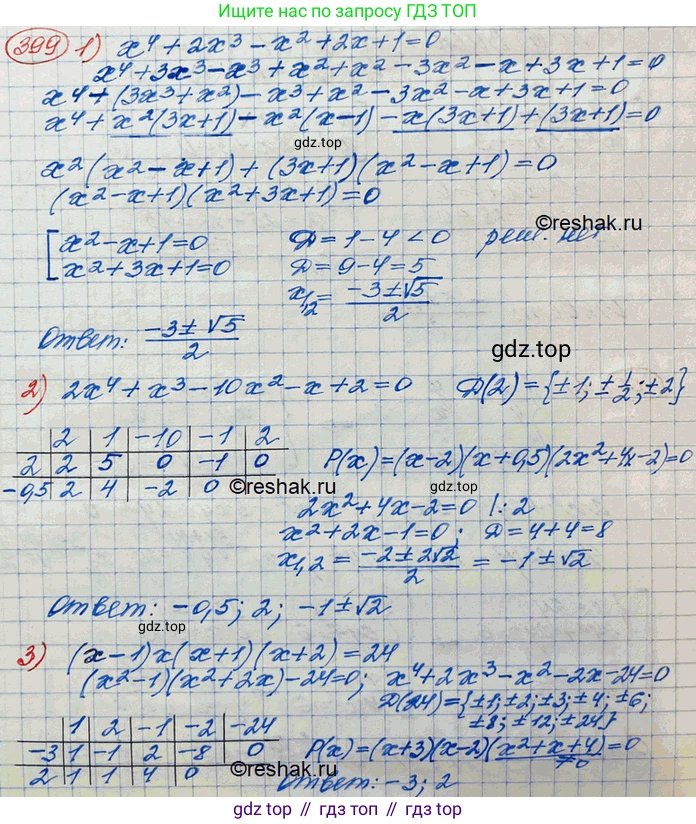 поиск номера по запросу ГДЗ ТОП
399 1) x⁴ + 2x³ - x² + 2x + 1 = 0
x⁴ + 3x³ - x³ + x² + x² - 3x² - x + 3x + 1 = 0
x⁴ + (3x³ + x²) - x³ + x² - 3x² - x + 3x + 1 = 0
x⁴ + x²(3x+1) - x²(x-1) - x(3x+1) + (3x+1) = 0
gdz.top
x²(x² - x + 1) + (3x+1)(x² - x + 1) = 0
(x² - x + 1)(x² + 3x + 1) = 0
©reshak.ru
[ x² - x + 1 = 0 D = 1 - 4 < 0 реш. нет
x² + 3x + 1 = 0 D = 9 - 4 = 5
x₁,₂ = (-3 ± √5)/2
Ответ: (-3 ± √5)/2
gdz.top
2) 2x⁴ + x³ - 10x² - x + 2 = 0 D(2) = {±1; ±1/2; ±2}
2 1 -10 -1 2
2 2 5 0 -1 0 P(x) = (x-2)(x+0,5)(2x² + 4x - 2) = 0
-0,5 2 4 -2 0
©reshak.ru
gdz.top
2x² + 4x - 2 = 0 |: 2
x² + 2x - 1 = 0; D = 4 + 4 = 8
x₁,₂ = (-2 ± 2√2)/2 = -1 ± √2
Ответ: -0,5; 2; -1 ± √2
gdz.top
3) (x-1)x(x+1)(x+2) = 24
(x² - 1)(x² + 2x) - 24 = 0; x⁴ + 2x³ - x² - 2x - 24 = 0
D(24) = {±1; ±2; ±3; ±4; ±6;
±8; ±12; ±24}
1 2 -1 -2 -24
-3 1 -1 2 -8 0 P(x) = (x+3)(x-2)(x² + x + 4) = 0
≠0
2 1 1 4 0
©reshak.ru
Ответ: -3; 2
gdz.top // гдз.топ // gdz.top // гдз.топ